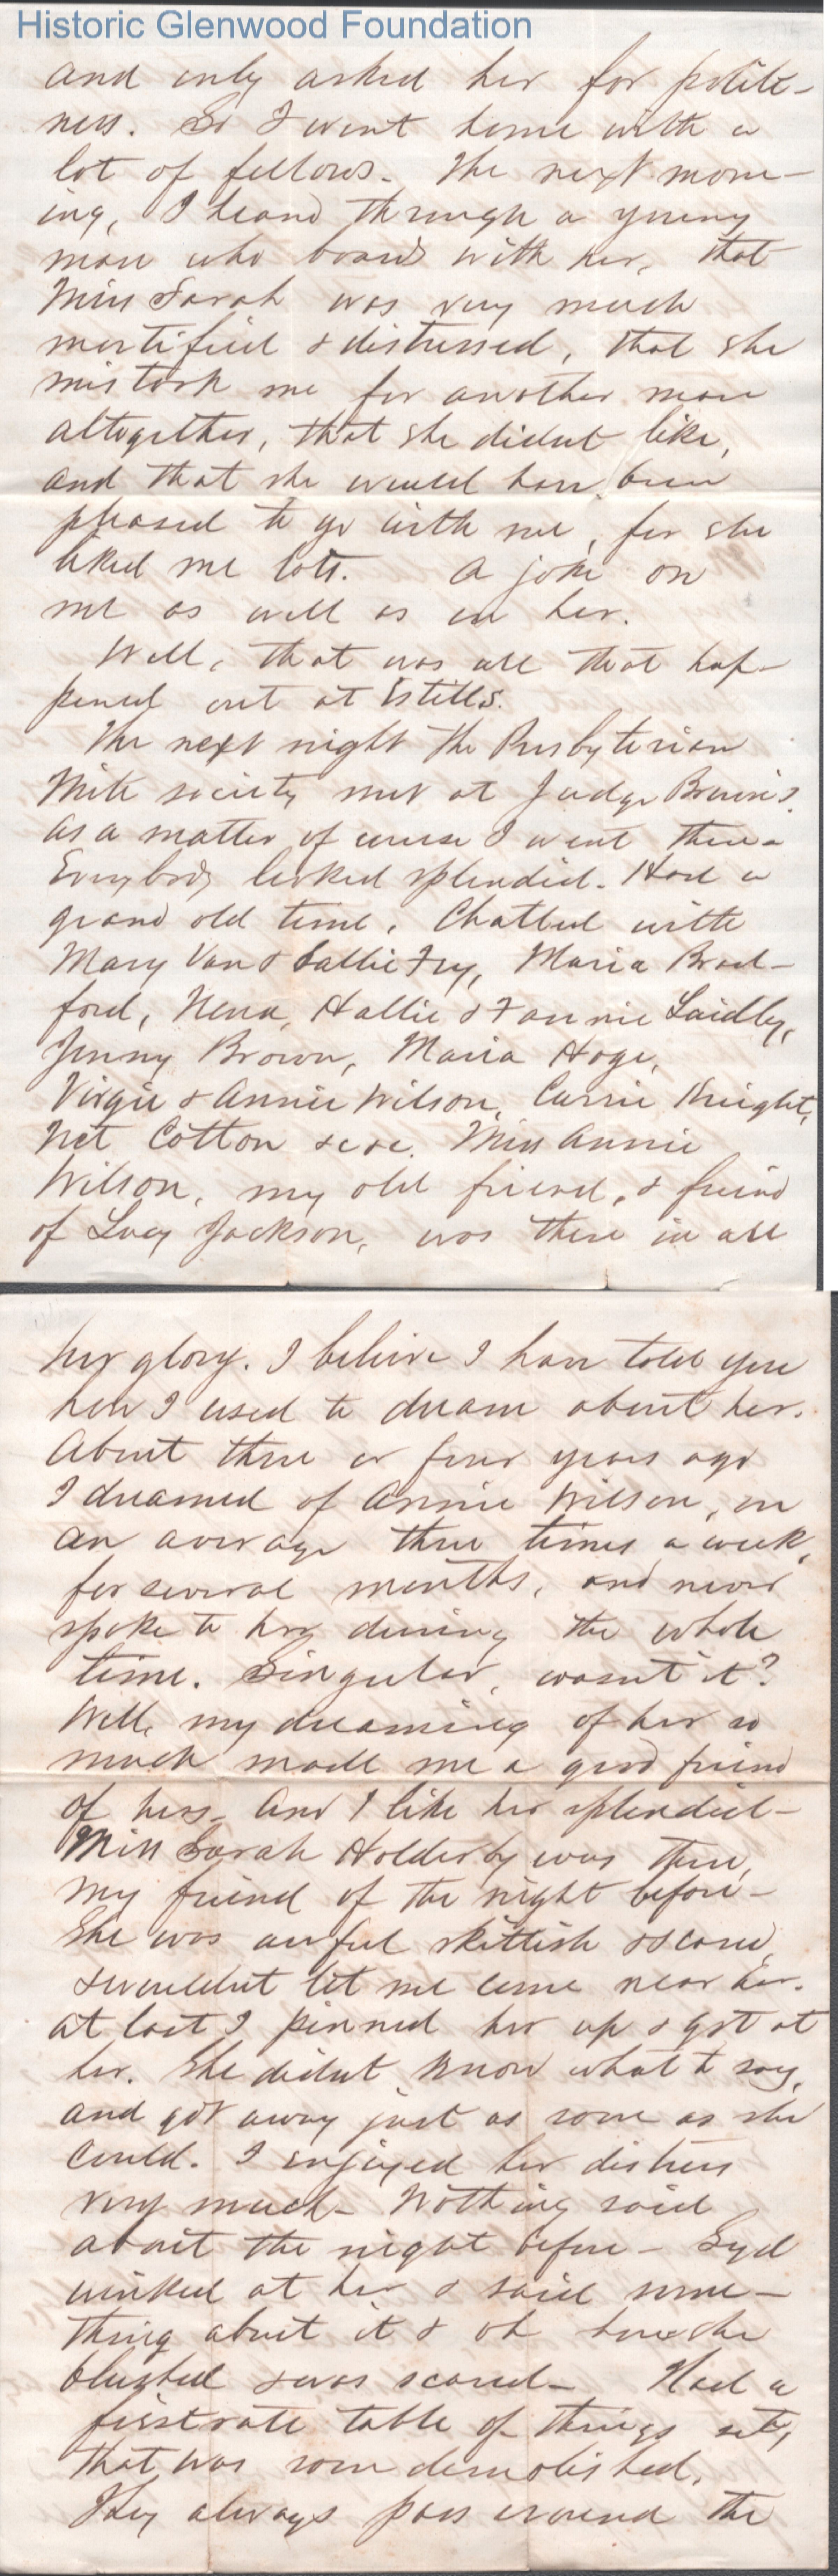 Historic Glenwood Foundation
and only asked her for polite-
ness. So I went home with a
lot of fellows. The next morn-
ing, I heard through a young
man who boards with her, that
Miss Sarah was very much
mortified & distressed, that she
mistook me for another man
altogether, that she didnt like,
and that she would have been
pleased to go with me, for she
liked me lots. A joke on
me as well as on her.
Well, that was all that hap-
pened out at Estills.
The next night the Presbyterian
Mite society met at Judge Brown's.
As a matter of course I went there.
Everybody looked splendid. Had a
grand old time. Chatted with
Mary Van & Sallie Fry, Maria Brad-
ford, Nena, Hallie & Fannie Laidly,
Jenny Brown, Maria Hoge,
Virgie & Annie Wilson, Carrie Knight,
Net Cotton &c &c. Miss Annie
Wilson, my old friend, & friend
of Lucy Jackson, was there in all
her glory. I believe I have told you
how I used to dream about her.
About three or four years ago
I dreamed of Annie Wilson, on
an average three times a week,
for several months, and never
spoke to her during the whole
time. Singular, wasnt it?
Well, my dreaming of her so
much made me a good friend
of hers. And I like her splendid-
Miss Sarah Holderby was there,
my friend of the night before-
She was awful skittish & scared,
& wouldnt let me come near her.
At last I pinned her up & got at
her. She didnt know what to say,
and got away just as soon as she
could. I enjoyed her distress
very much- Nothing said
about the night before- Syd
winked at her & said some-
thing about it & oh how she
blushed & was scared- Had a
first rate table of things set,
that was soon demolished.
They always pass around the